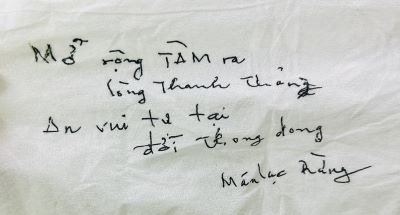 Mở rộng TÂM ra
lòng Thanh Thản
An vui tự tại
đời thong dong
Mán